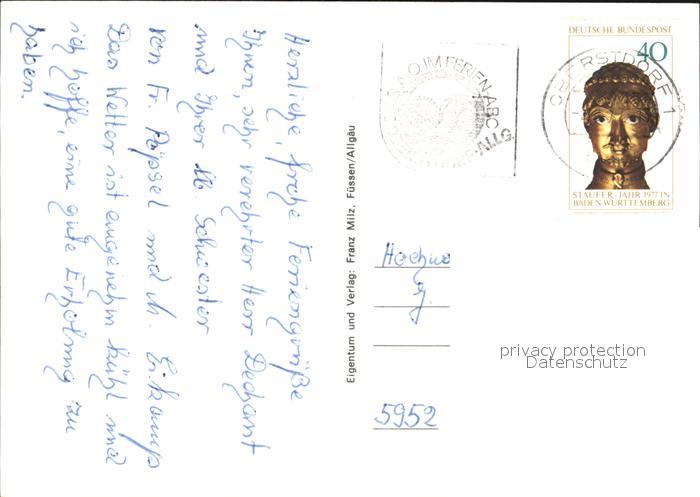 Herzliche, frohe Feriengrüße
Ihnen, sehr verehrter Herr Dechant
und Ihrer lb Schwester
von Fr. Pöppel und M.
Das Wetter ist angenehm kühl und
ich hoffe, eine gute Erholung zu
haben.
Eigentum und Verlag: Franz Milz, Füssen/Allgäu
IM FERIEN-ABC
DEUTSCHE BUNDESPOST
40
OBERSTDORF 1
STAUFER-JAHR 1977 IN
BADEN-WÜRTTEMBERG
Hochw
5952
privacy protection
Datenschutz